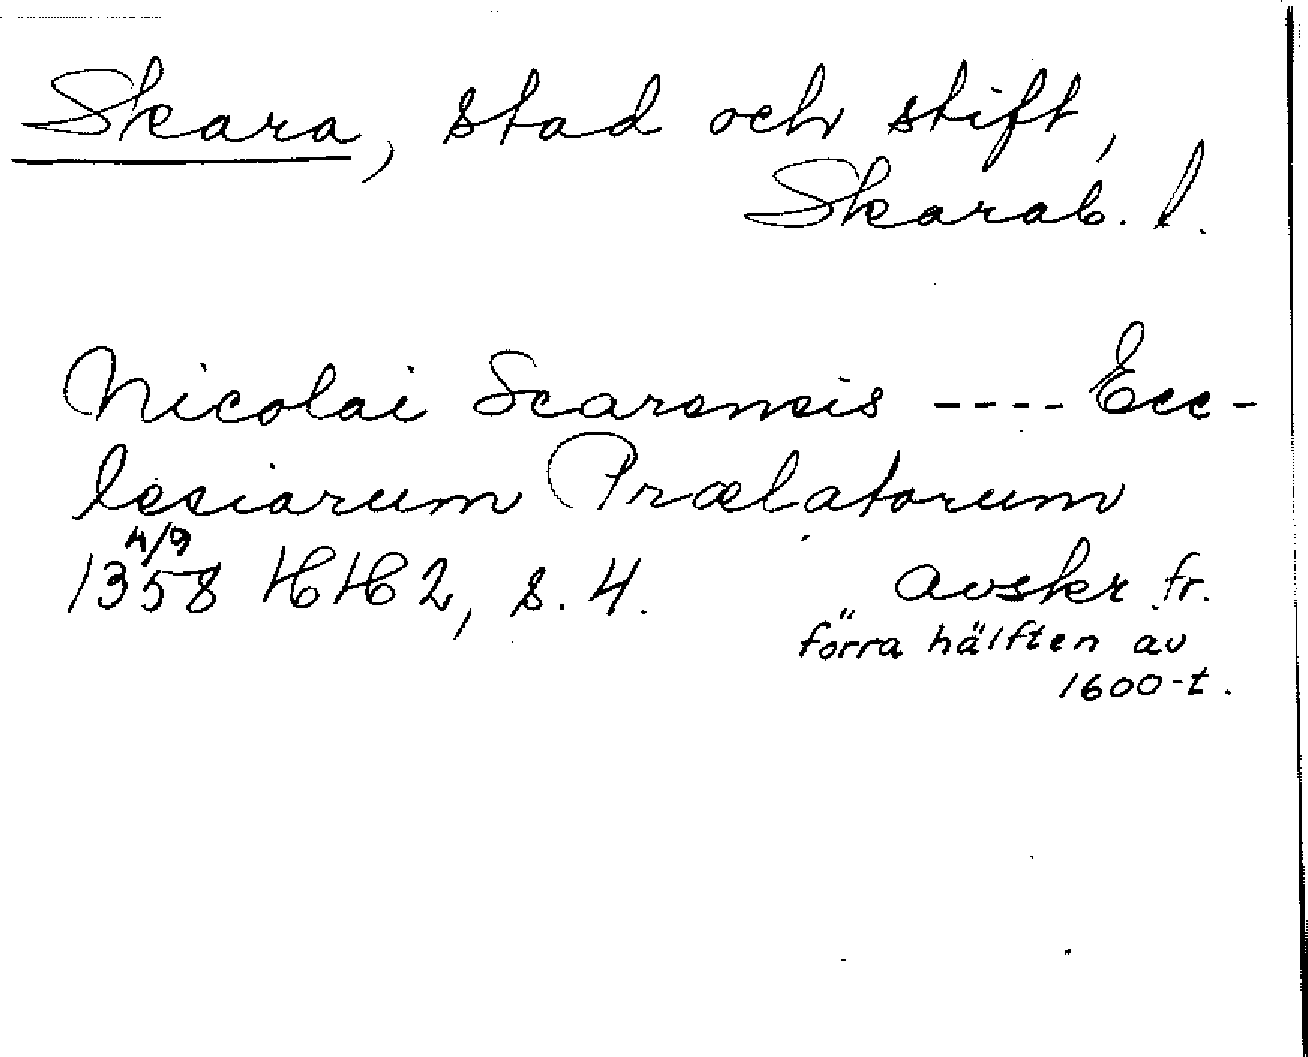 Skara, stad och stift,
Skarab. l.
Nicolai Scarensis ---- Ecc-
lesiarum Prælatorum
4/9
1358 HH 2, s. 4. avskr. fr.
förra hälften av
1600-t.